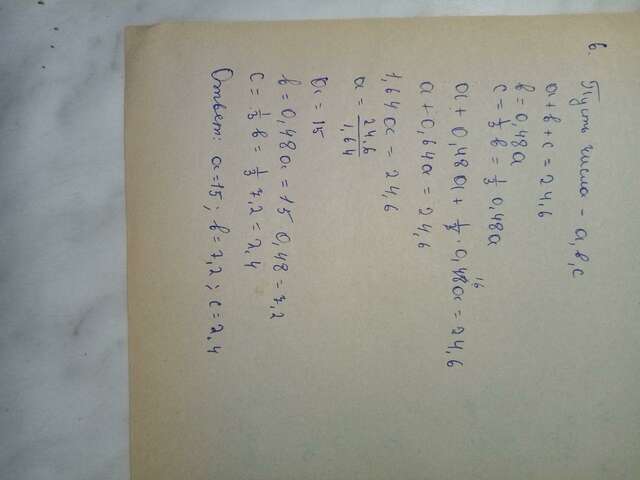 6. Пусть числа – a, b, c
a + b + c = 24,6
b = 0,48a
c = 1/3 b = 1/3 0,48a
a + 0,48a + 1/3 · 0,48a = 24,6
a + 0,64a = 24,6
1,64a = 24,6
a = 24,6/1,64
a = 15
b = 0,48a = 15 0,48 = 7,2
c = 1/3 b = 1/3 7,2 = 2,4
Ответ: a = 15; b = 7,2; c = 2,4